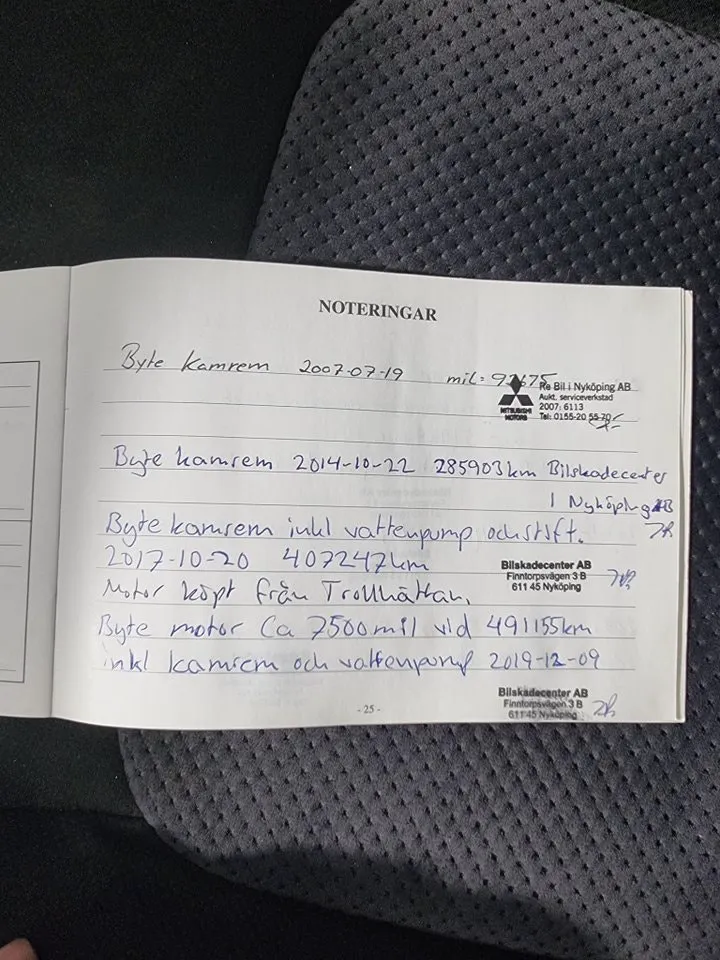 NOTERINGAR
Byte Kamrem 2007-07-19 mil: 92675
Re Bil i Nyköping AB
Aukt. serviceverkstad
2007: 6113
Tel: 0155-20 55 70
MITSUBISHI
MOTORS
Byte kamrem 2014-10-22 285903km Bilskadecenter
I Nyköping AB
Byte kamrem inkl vattenpump och stift.
2017-10-20 407247km
Bilskadecenter AB
Finntorpsvägen 3 B
611 45 Nyköping
Motor köpt från Trollhättan,
Byte motor Ca 7500mil vid 491155km
inkl kamrem och vattenpump 2019-12-09
Bilskadecenter AB
Finntorpsvägen 3 B
611 45 Nyköping
- 25 -